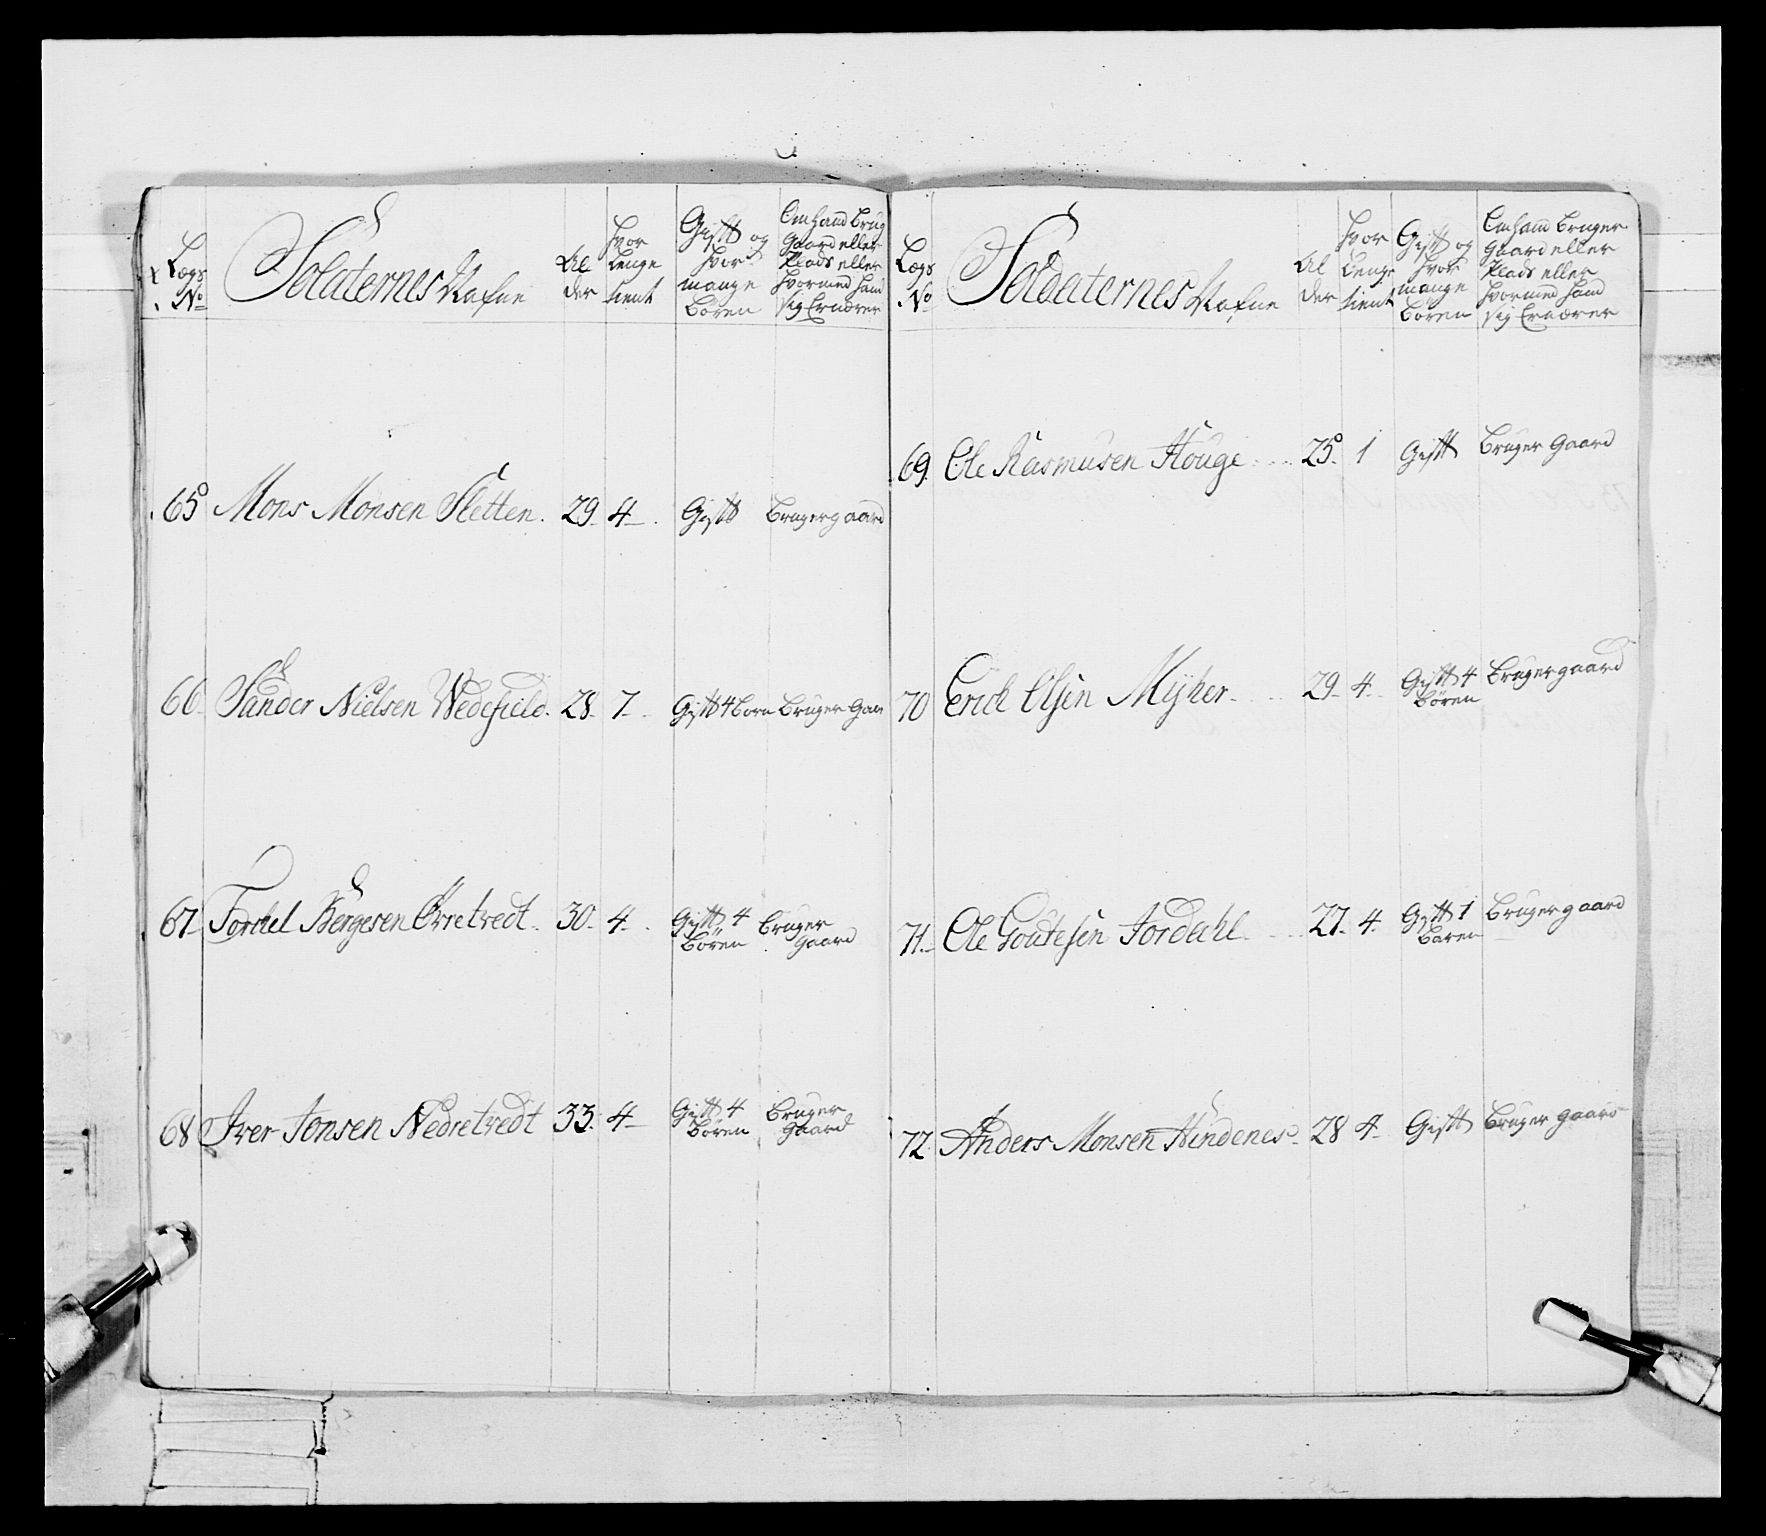 Lægs No | Soldaternes Nafne | Al der | hvor Lenge tient | Gift og hvor mange Børen | Om hand Brug Gaard eller Plads eller hvormed hand sig Ernærer
65 Mons Monsen Sletten. 29. 4. Gift Bruger gaard
66. Sander Nielsen Wedefield. 28. 7. Gift 4 Born Bruger Gaar
67. Torckel Bergesen Øvretvedt. 30. 4. Gift 4 Børen Bruger Gaard
68 Iver Jonsen Nedretvedt 33. 4 Gift 4 Børen Bruger Gaard
Lægs No | Soldaternes Nafne | Al der | hvor Lenge tient | Gift og hvor mange Børen | Om hand Bruger Gaard eller Plads eller hvormed hand sig Ernærer
69. Ole Rasmusen Houge 25. 1 Gift Bruger Gaard
70 Erick Olsen Myher 29. 4. Gift 4 Børen Bruger gaard
71. Ole Goutesen Jordahl 27. 4. Gift 1 Baren Bruger gaard
72. Anders Monsen Hindenes 28 4 Gift Bruger gaard